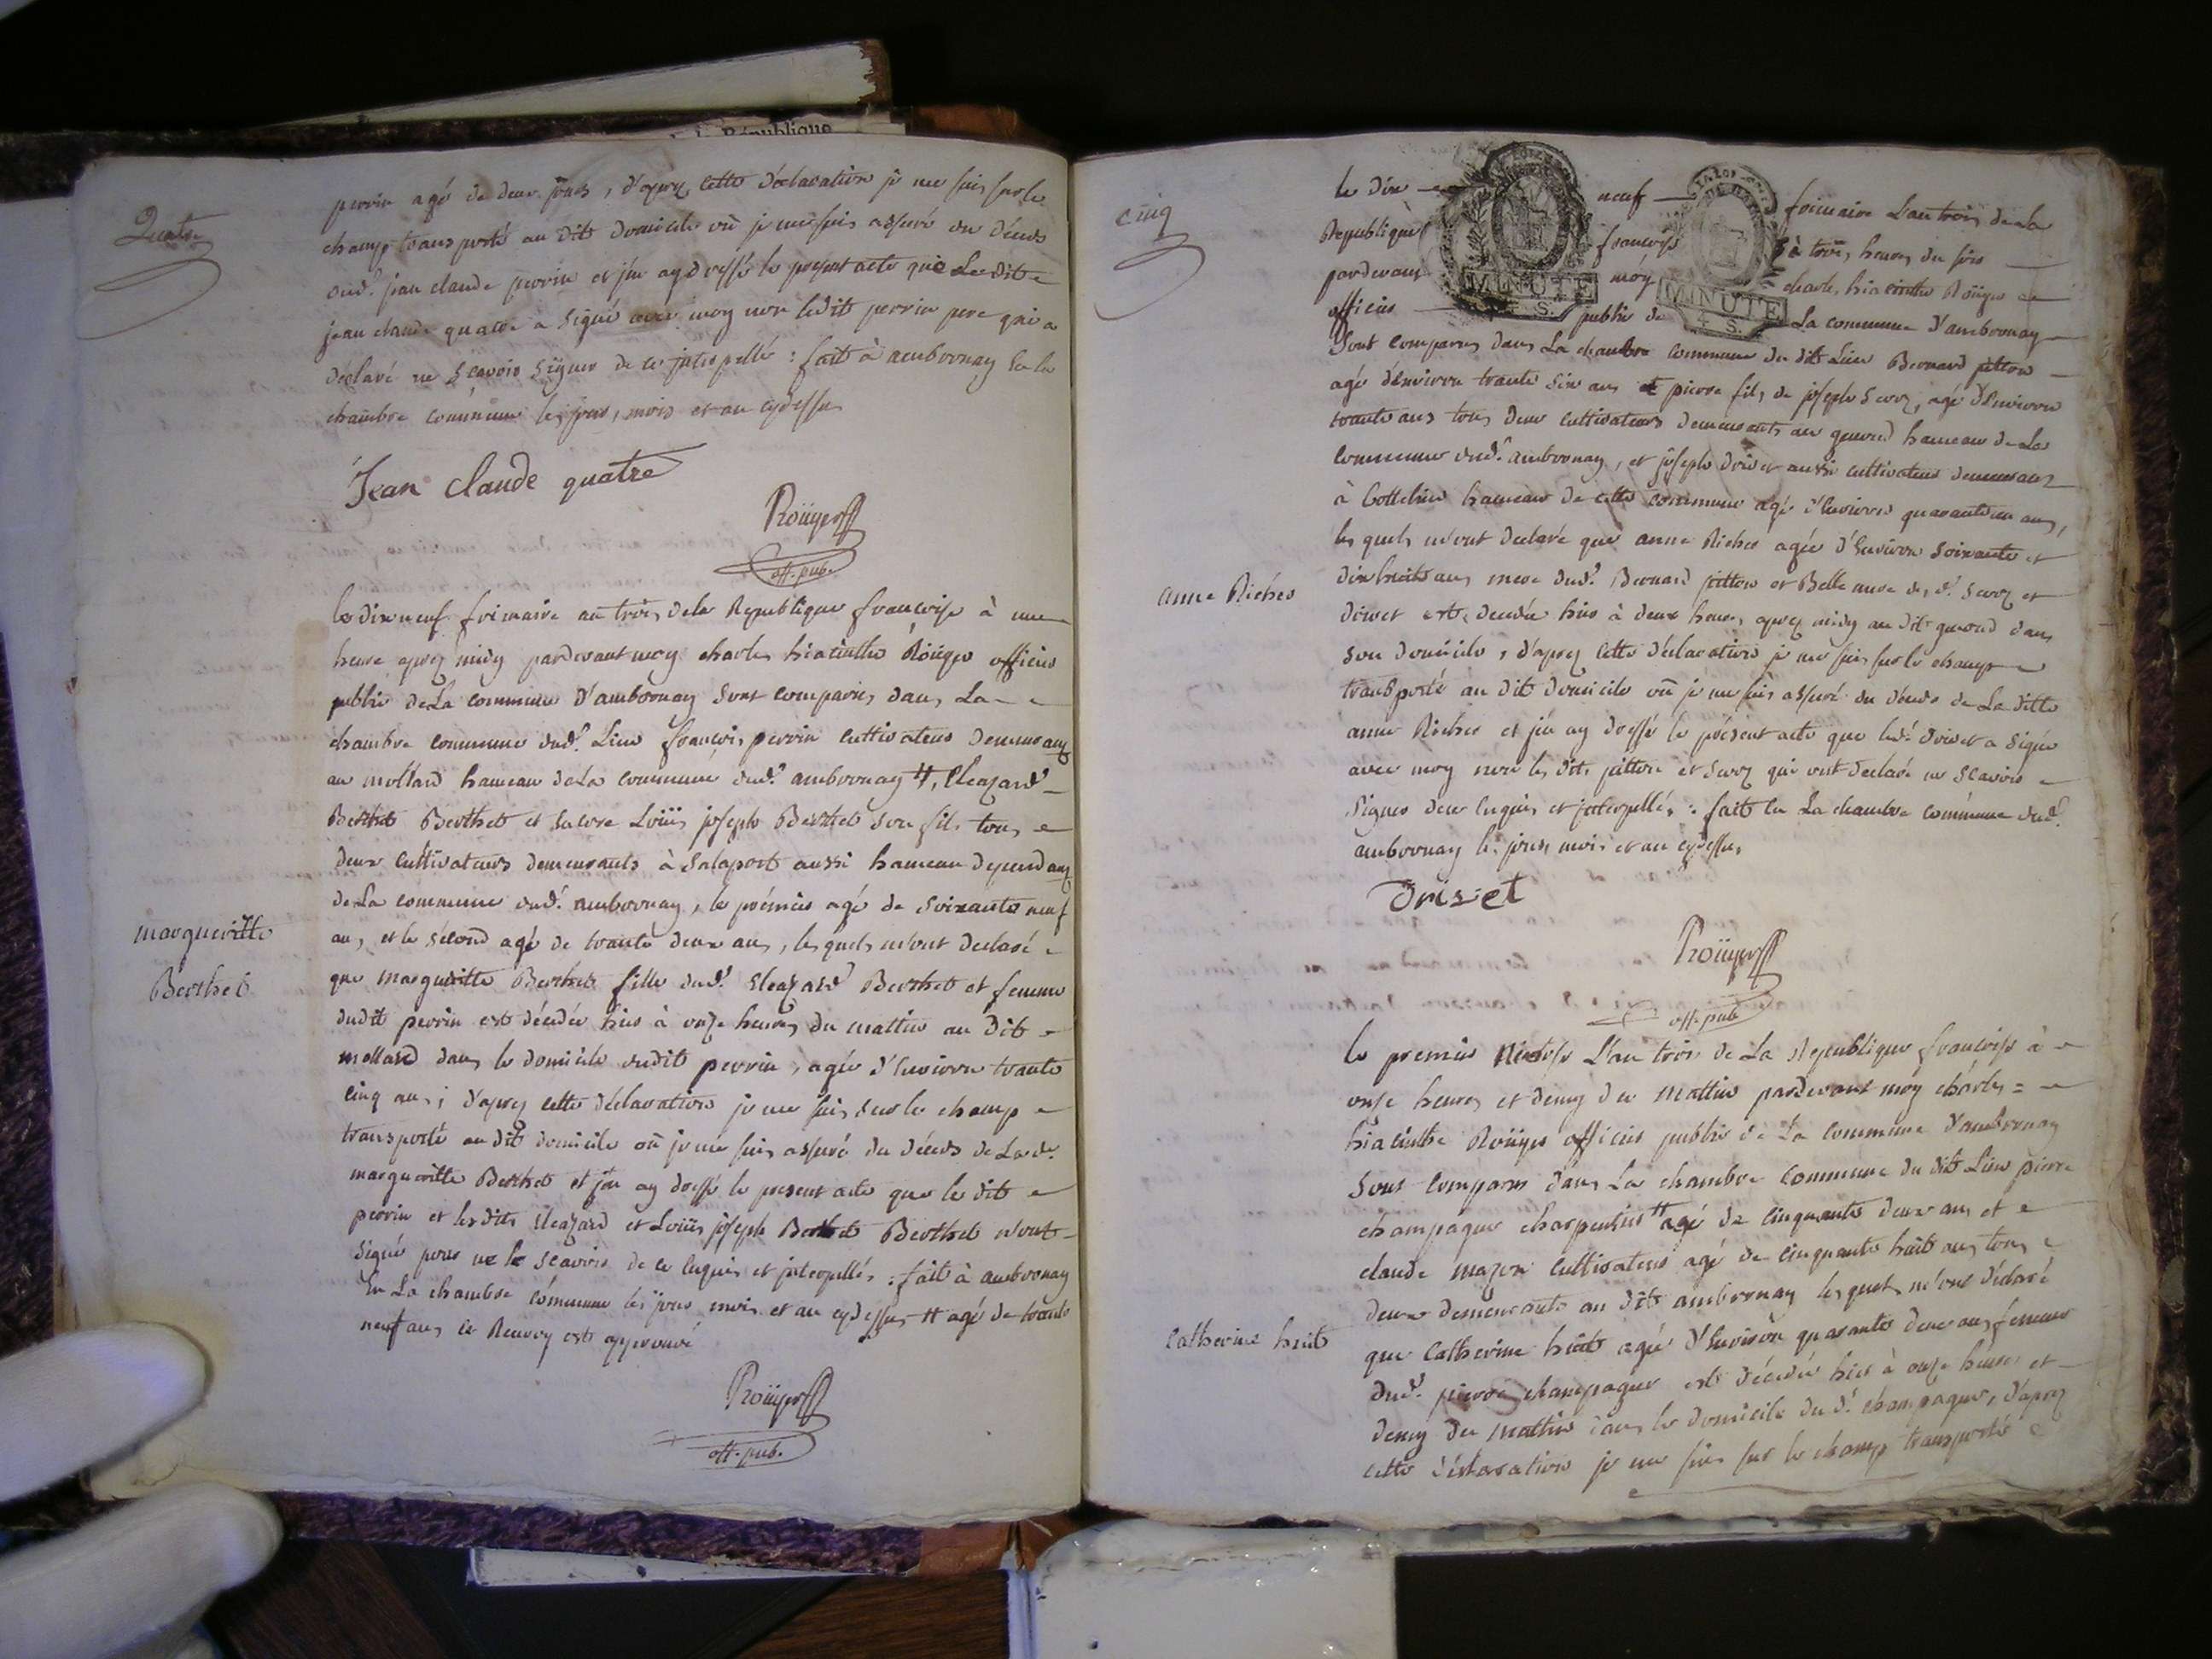 de la République
Quatre
perrin agé de deux jours, d'après cette déclaration je me suis sur le
champ transporté au dit domicile où je me suis assuré du décès
dud. jean claude perrin et j'en ay dressé le present acte que Le dit
jean claude quatre a signé avec moy non ledit perrin pere qui a
déclaré ne sçavoir signer de ce jnterpellé : fait à ambronay En la
chambre commune les jour, mois et an cydessus
Jean claude quatre
Roüyer
off. pub.
le dixneuf frimaire an trois dela Republique françoise à une
heure après midy pardevant moy charles hiacinthe Roüyer officier
public deLa commune d'ambronay sont comparus dans La
chambre commune dud. Lieu françois perrin cultivateur demeurant
au mollard hameau deLa commune dud. ambronay #, Eleazard
Berthet Berthet et encore Loüis joseph Berthet son fils tous
deux cultivateurs demeurants à Salaport aussi hameau dependant
deLa commune dud. ambronay, le premier agé de soixante neuf
ans, et le second agé de trante deux ans, lesquels m'ont declaré
margueritte
Berthet
que margueritte Berthet fille dud. Eleazard Berthet et femme
dudit perrin est décédée hier à onze heures du mattin au dit
mollard dans le domicile dudit perrin, agée d'Environ trante
cinq ans ; d'après cette déclaration je me suis sur le champ
transporté au dit domicile où je me suis assuré du décès de Lad.
margueritte Berthet et j'en ay dressé le present acte que le dit
perrin et lesdits Eleazard et Loüis joseph Berthet Berthet n'ont
signé pour ne le sçavoir de ce Enquis et jnterpellés : fait à ambronay
En La chambre commune les jour mois et an cydessus # agé de trante
neuf ans ce Renvoy est approuvé
Roüyer
off. pub.
cinq
le dix neuf frimaire L'an trois de La
Republique françoise à trois heures du soir
pardevant moy charles hiacinthe Roüyer
officier public de La commune d'ambronay
MINUTE
4 S.
MINUTE
4 S.
Sont comparus dans La chambre commune du dit Lieu Bernard pitton
agé d'Environ trante six ans et pierre fils de joseph Servoz, agé d'Environ
trante ans tous deux cultivateurs demeurants au genoud hameau de La
commune dud. ambronay, et joseph drivet aussi cultivateur demeurant
à Cottelieu hameau de cette commune agé d'Environ quarante un ans,
lesquels m'ont declaré que anne Riches agée d'Environ soixante et
anne Riches
dixhuit ans mere dud. Bernard pitton et Belle mere desd. Servoz et
drivet est décédée hier à deux heures après midy au dit genoud dans
son domicile, d'après cette déclaration je me suis sur le champ
transporté au dit domicile où je me suis assuré du décès de La ditte
anne Riches et j'en ay dressé le présent acte que led. drivet a signé
avec moy non les dits pitton et Servoz qui ont declaré ne sçavoir
signer deux Enquis et jnterpellés : fait En La chambre commune dud.
ambronay les jour, mois et an cydessus
Drivet
Roüyer
off. pub
le premier Nivose L'an trois de La Republique françoise à
onze heures et demy du mattin pardevant moy charles =
hiacinthe Roüyer officier public de La commune d'ambronay
Sont comparus dans La chambre commune du dit Lieu pierre
champagne charpentier # agé de cinquante deux ans et
claude mazou cultivateur agé de cinquante huit ans tous
deux demeurants au dit ambronay lesquels m'ont déclaré
catherine huit
que Catherine huit agée d'Environ quarante deux ans femme
dud. pierre champagne est décédée hier à onze heures et
demy du mattin dans le domicile dud. champagne, d'après
cette déclaration je me suis sur le champ transporté